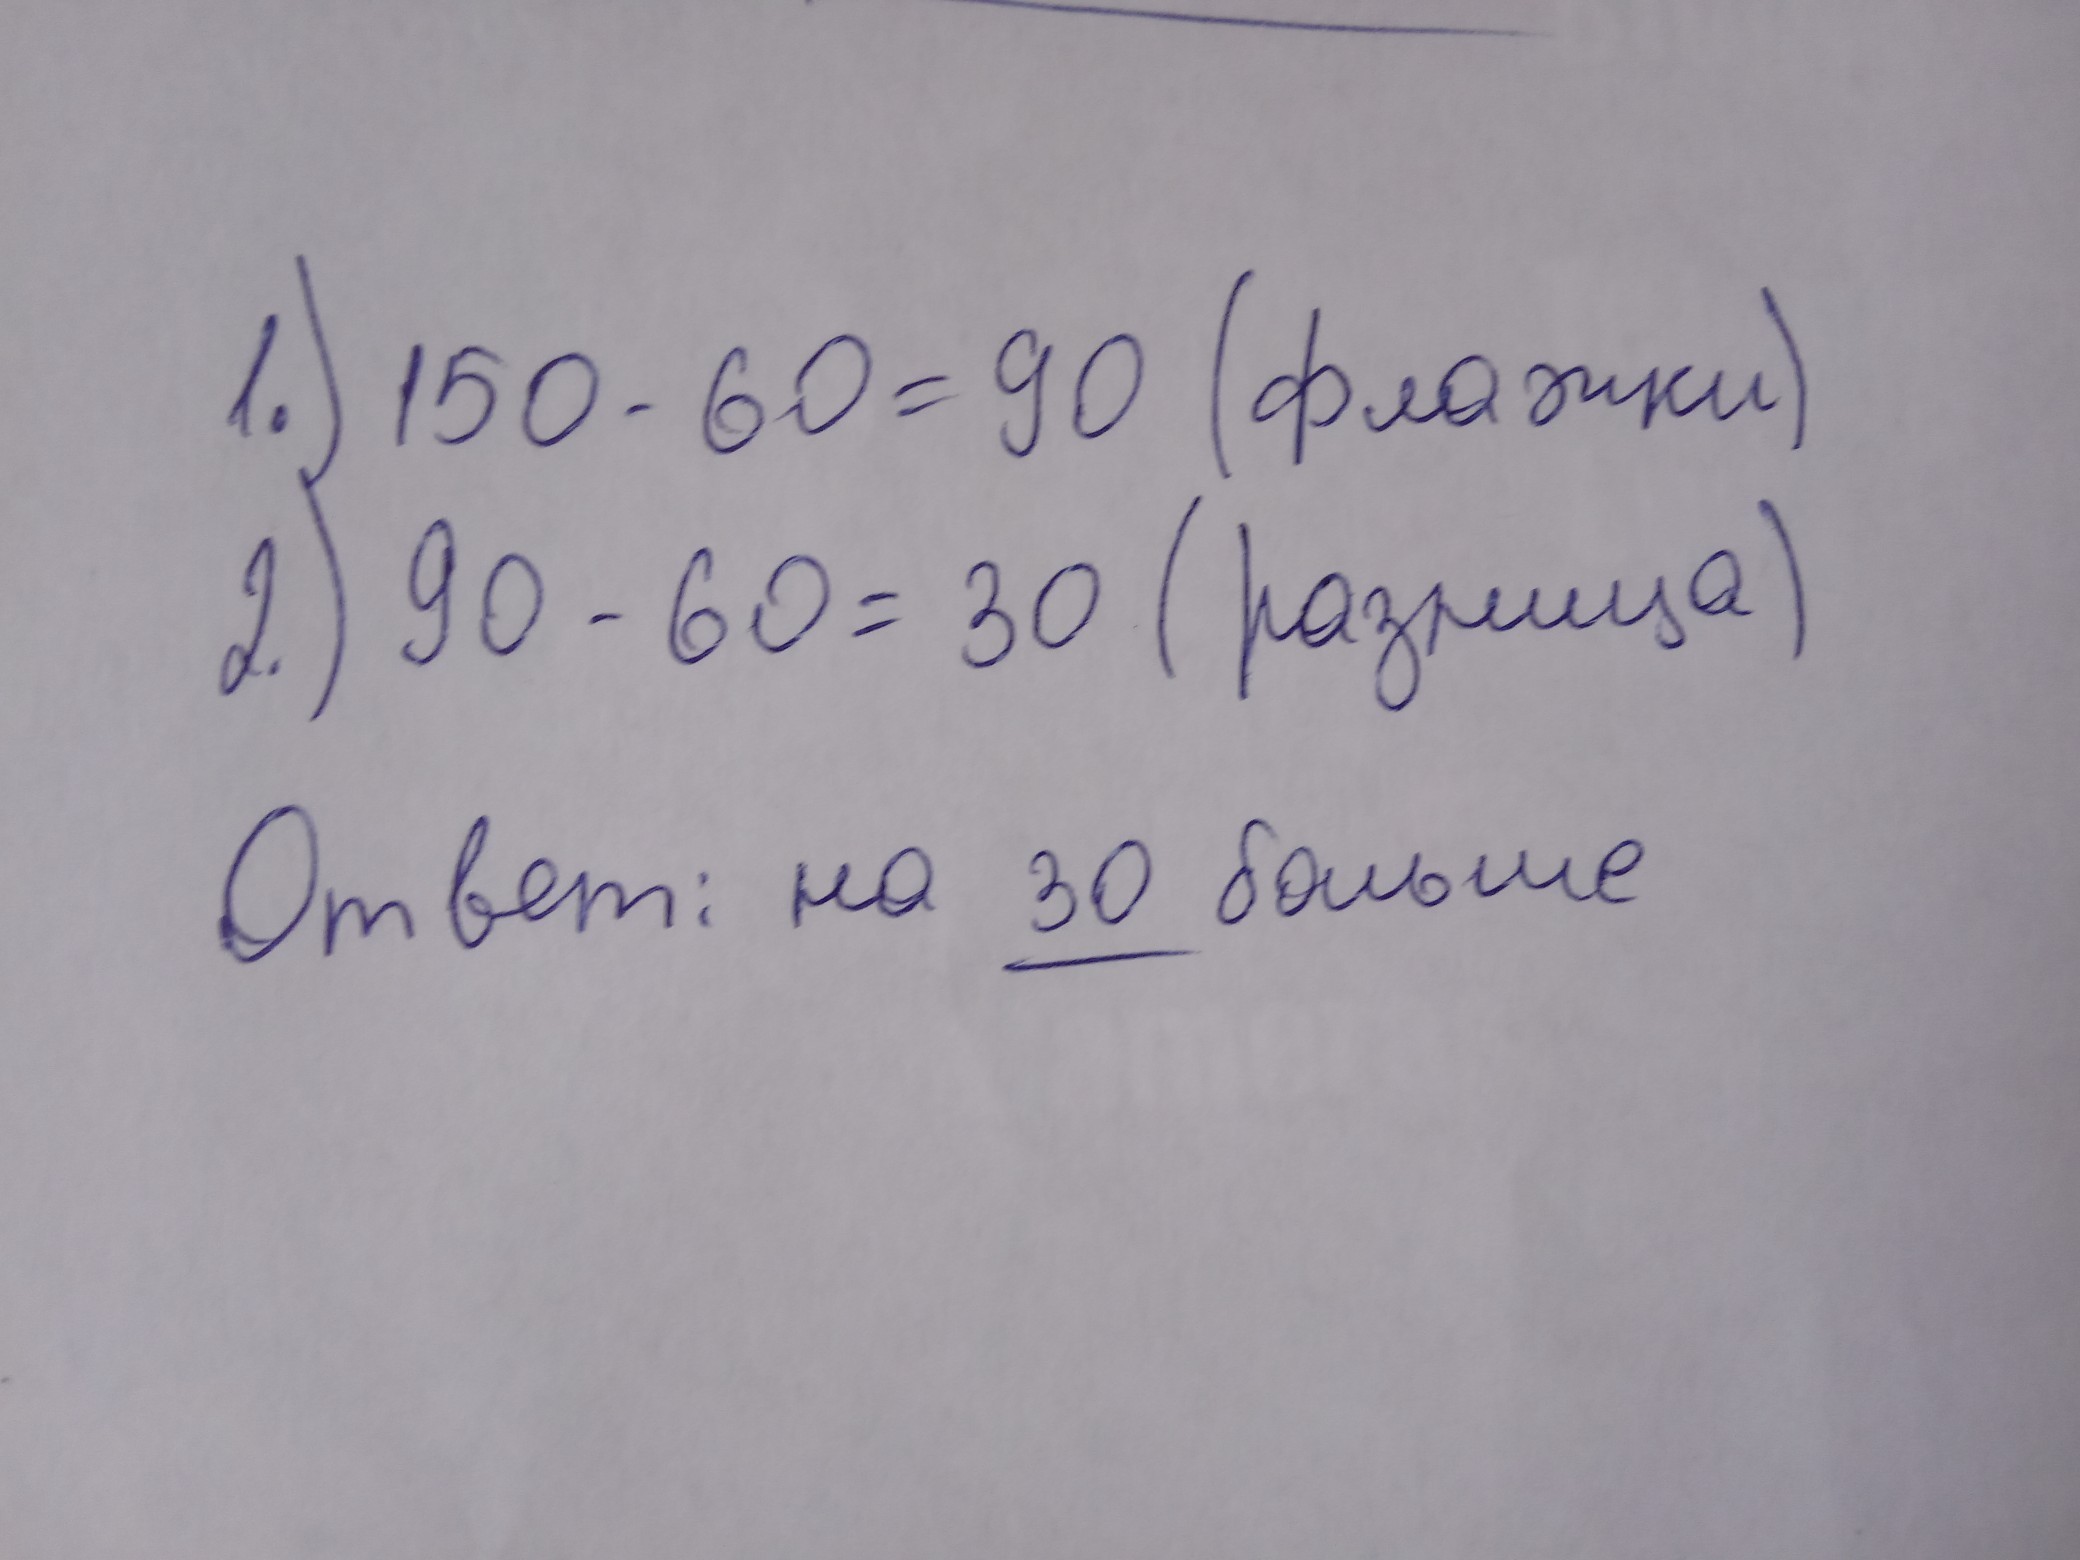 1.) 150 - 60 = 90 (флажки)
2.) 90 - 60 = 30 (разница)
Ответ: на 30 больше